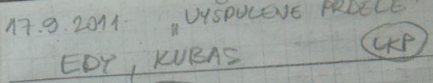 17.9.2011 „VYŠPULENÉ PRDELE
EDY, KUBAS LKP